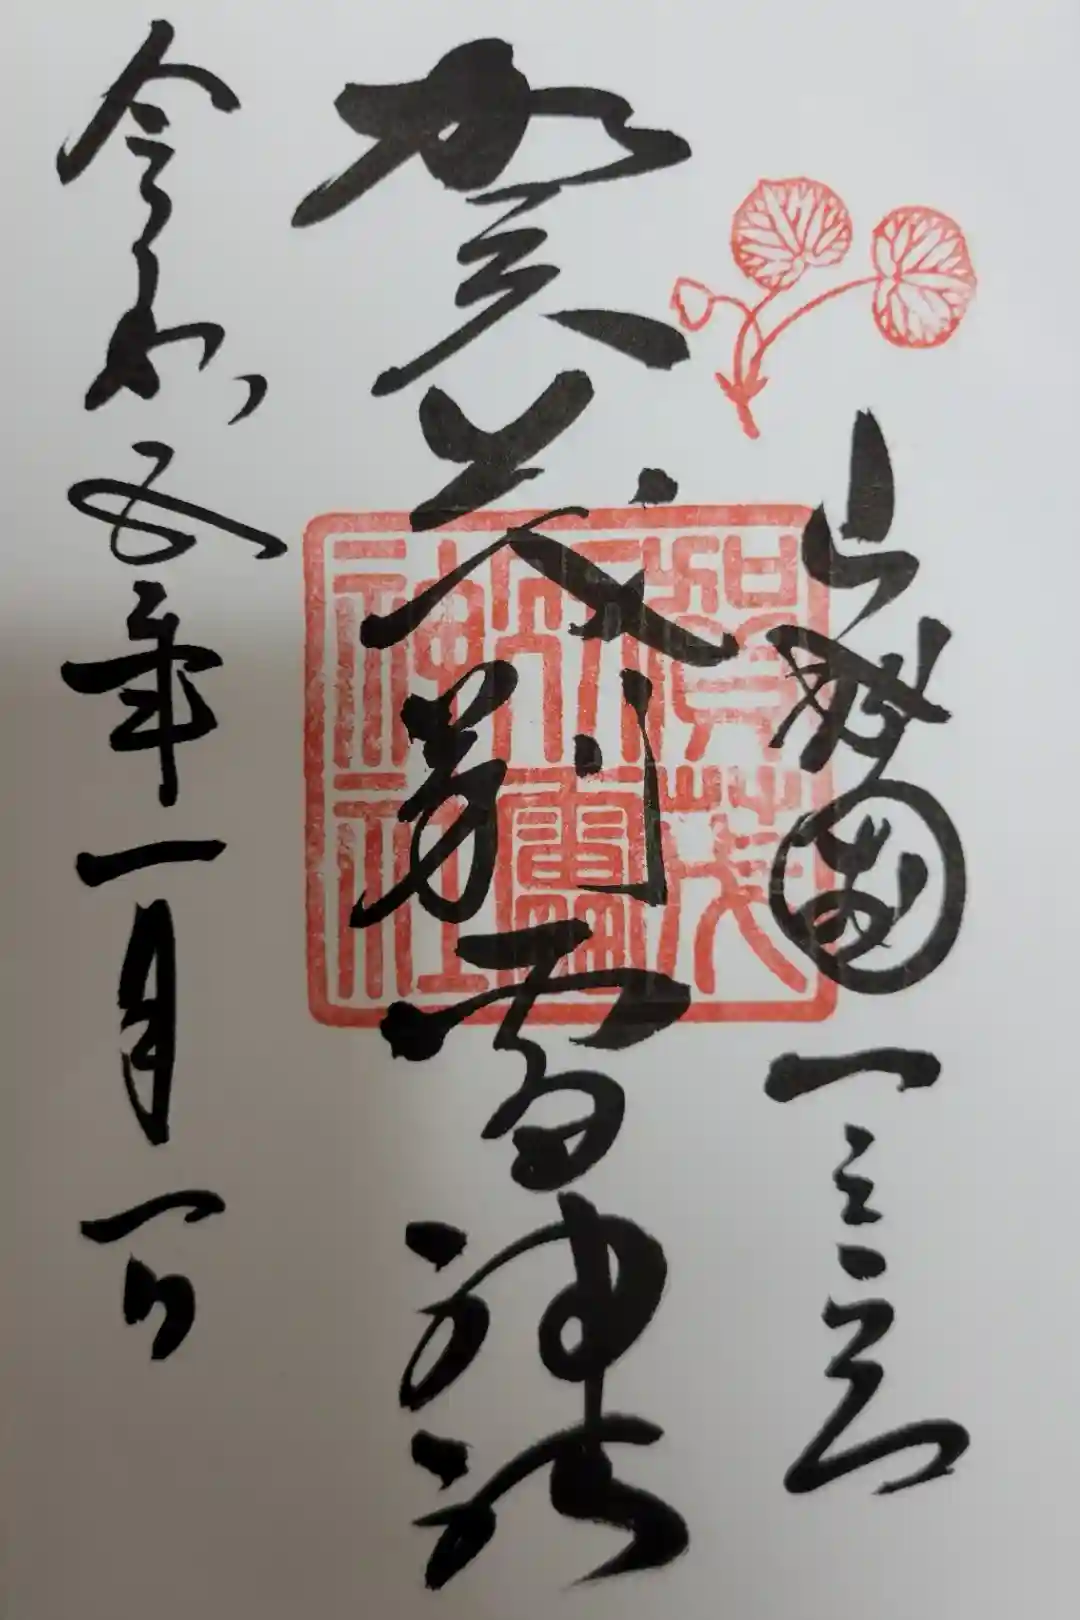 山城國一之宮
賀茂別雷神社
令和五年一月一日
賀茂
別雷
神社